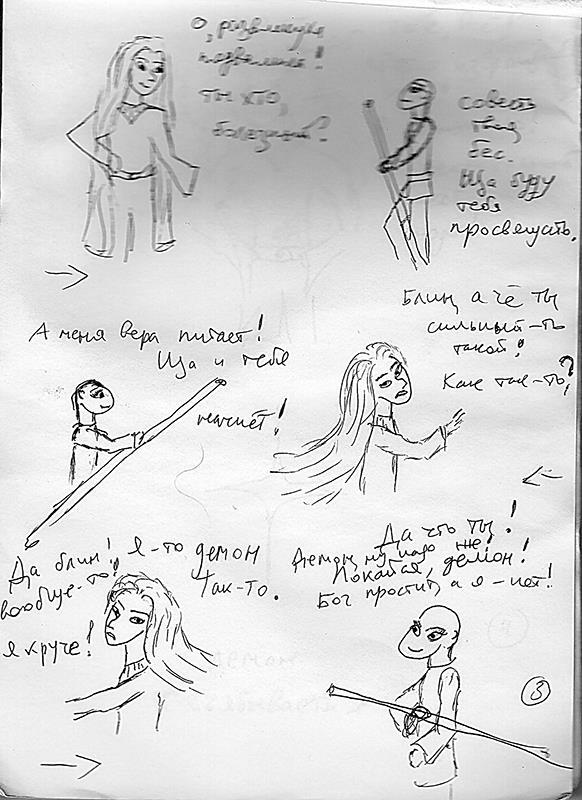 О, развлекуха
пожаловала!
Ты кто,
болезный?
Совесть
твоя,
бес.
Ща буду
тебя
просвещать.
А меня вера питает!
Ща и тебе
начнёт!
Блин, а чё ты
сильный-то
такой?
Как так-то?
Да блин! Я-то демон
вообще-то! Так-то.
я круче!
Да что ты!
Демон, ну надо же!
Покайся, демон!
Бог простит, а я - нет!
3